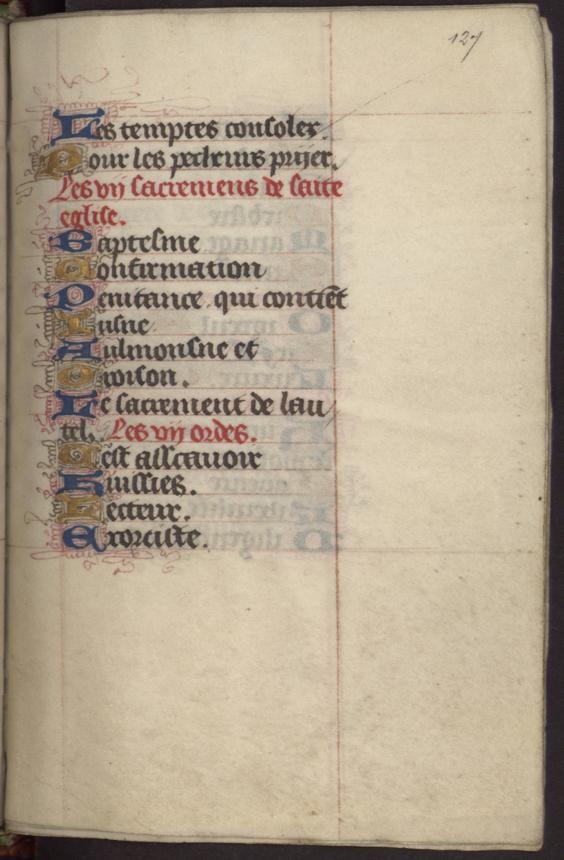 127
Les temptes consoler.
Pour les pecheurs prijer.
Les vij sacremens de saīte
eglise.
Baptesme
Confirmation
Penitance qui contiēt
Jusne
Aulmonsne et
Oroison.
Le sacrement de lau
tel. Les vij ordes.
Cest asscauoir
Huissies.
Lecteur.
Exorciste.